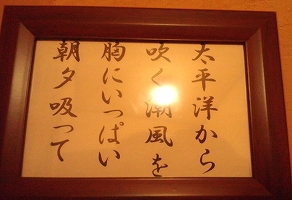 太平洋から
吹く潮風を
胸にいっぱい
朝夕吸って